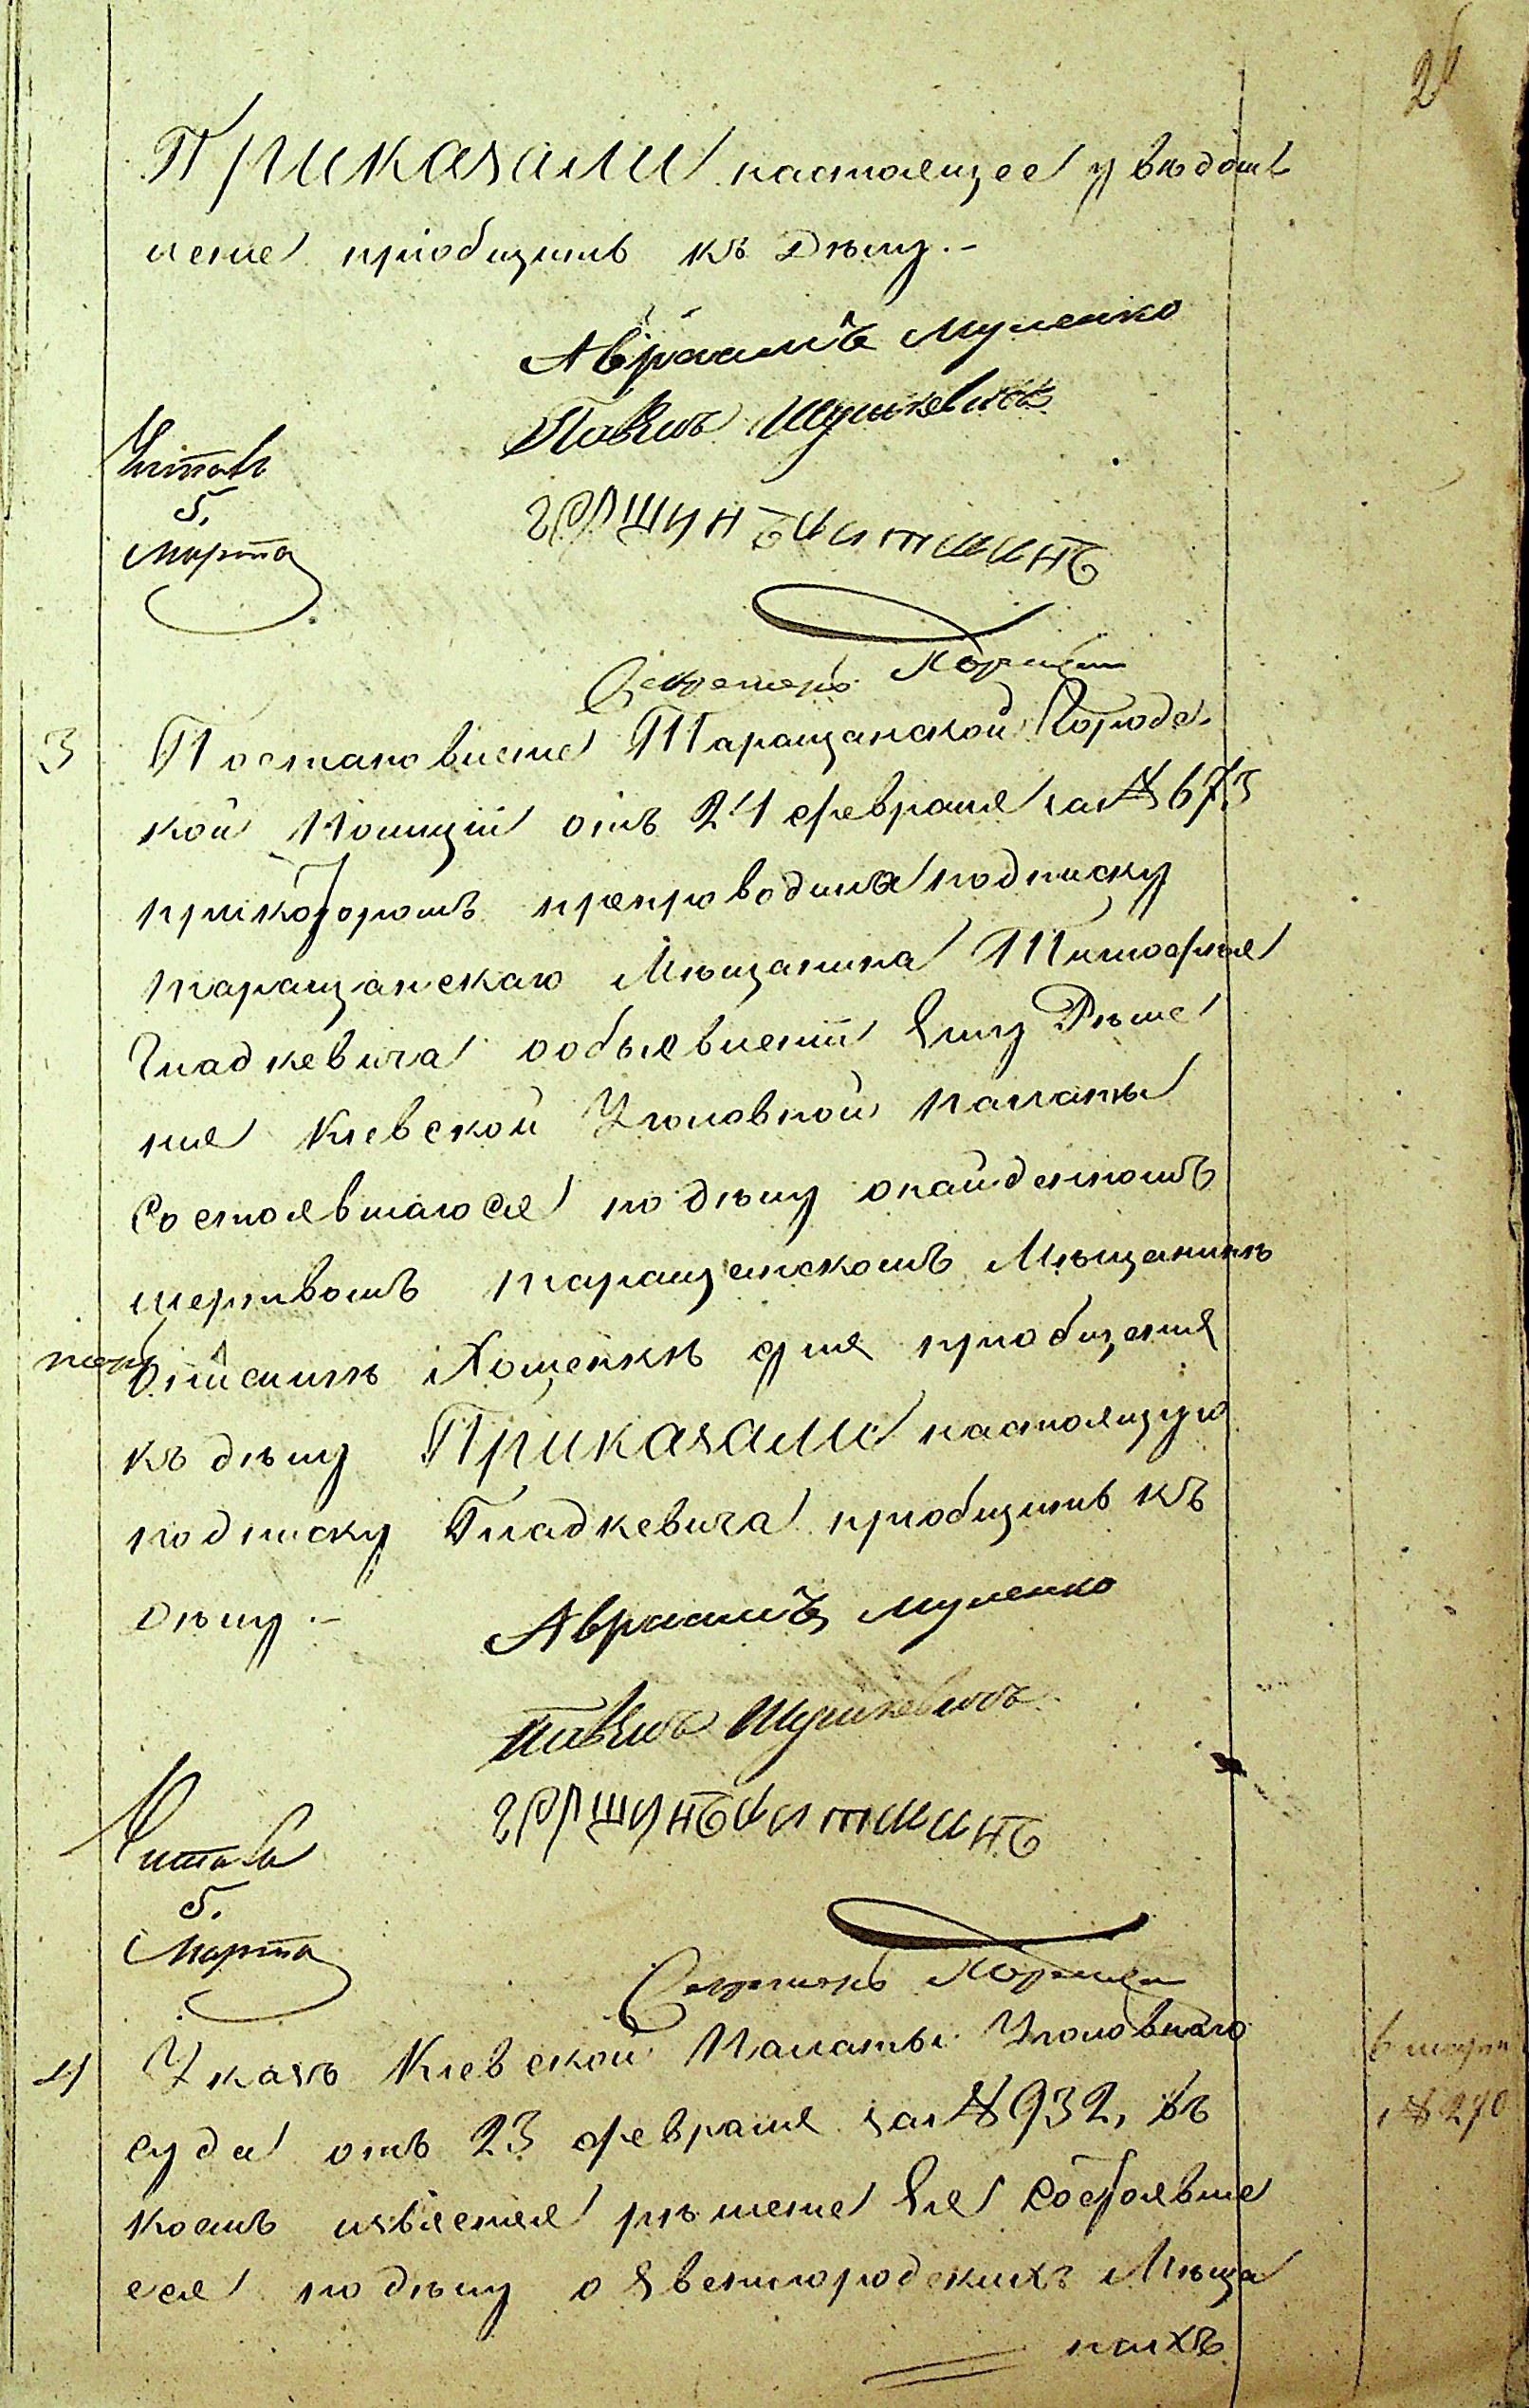 26
Приказали настоящее увѣдом
леніе пріобщить къ Дѣлу.-
Авраамъ Муленко
Павелъ Шулькевичъ
Читалъ
5.
Марта
гершинъ
Секретарь
3
Постановленіе Таращанской Городс
кой Полиціи отъ 24 февраля за № 673
прикоторомъ препроводила подписку
таращанскаго Мѣщанина Тимофѣя
Гладкевича ообъявленіи Ему Рѣше
нія Кіевской Уголовной палаты
Состоявшагося по дѣлу онайденномъ
мертвомъ таращанскомъ Мѣщанинѣ
Хоменкѣ для пріобщенія
къ дѣлу Приказали настоящую
подписку Гладкевича пріобщить къ
Дѣлу.-
Авраамъ Муленко
Павелъ Шулькевичъ
гершинъ
Читалъ
5.
Марта
Секретарь
4
Указъ Кіевской Палаты Уголовнаго
суда отъ 23 февраля за № 932, въ
коемъ изъяснея рѣшеніе Ея Состоявше
еся по дѣлу о Звенигородскихъ Мѣща
нахъ